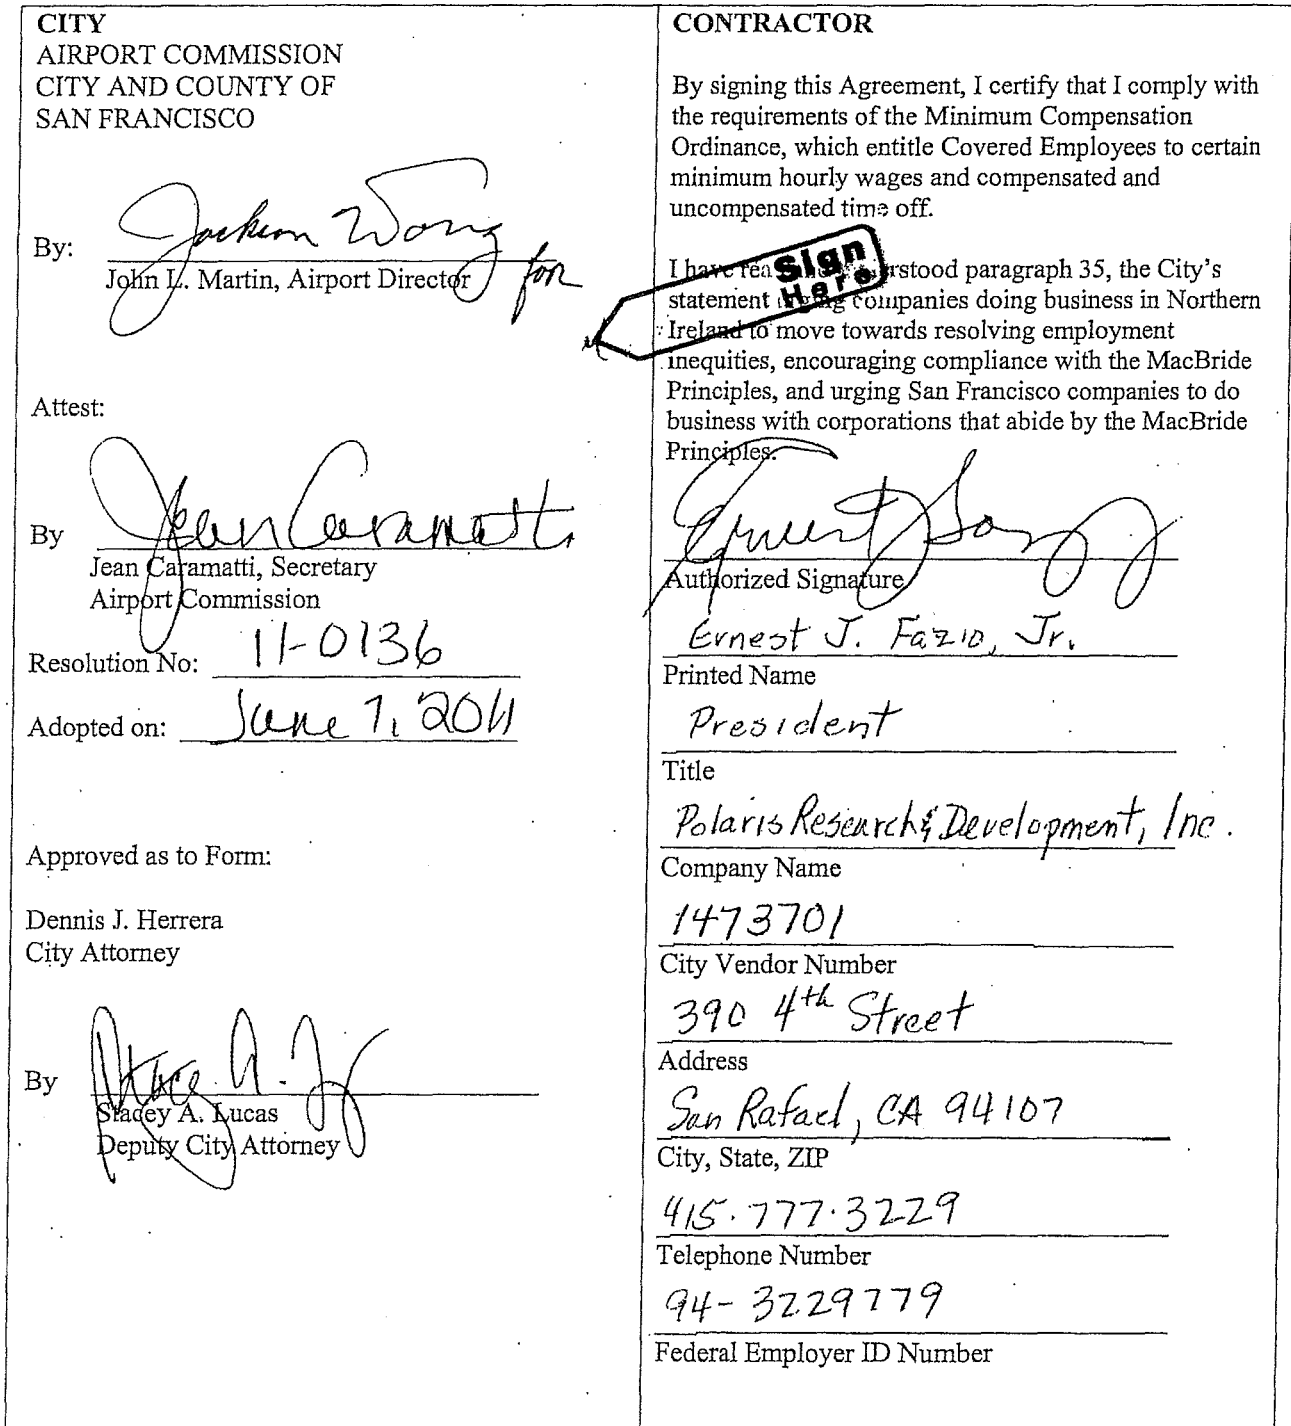 CITY
AIRPORT COMMISSION
CITY AND COUNTY OF
SAN FRANCISCO
Jackson Wong
By:
John L. Martin, Airport Director
for
Attest:
Jean Caramatti
By
Jean Caramatti, Secretary
Airport Commission
Resolution No: 11-0136
Adopted on: June 7, 2011
Approved as to Form:
Dennis J. Herrera
City Attorney
By
Stacey A. Lucas
Deputy City Attorney
CONTRACTOR
By signing this Agreement, I certify that I comply with
the requirements of the Minimum Compensation
Ordinance, which entitle Covered Employees to certain
minimum hourly wages and compensated and
uncompensated time off.
Sign
Here
I have rstood paragraph 35, the City's
statement companies doing business in Northern
Ireland to move towards resolving employment
inequities, encouraging compliance with the MacBride
Principles, and urging San Francisco companies to do
business with corporations that abide by the MacBride
Principles.
Authorized Signature
Ernest J. Fazio, Jr.
Printed Name
President
Title
Polaris Research & Development, Inc.
Company Name
1473701
City Vendor Number
390 4th Street
Address
San Rafael, CA 94107
City, State, ZIP
415.777.3229
Telephone Number
94-3229779
Federal Employer ID Number